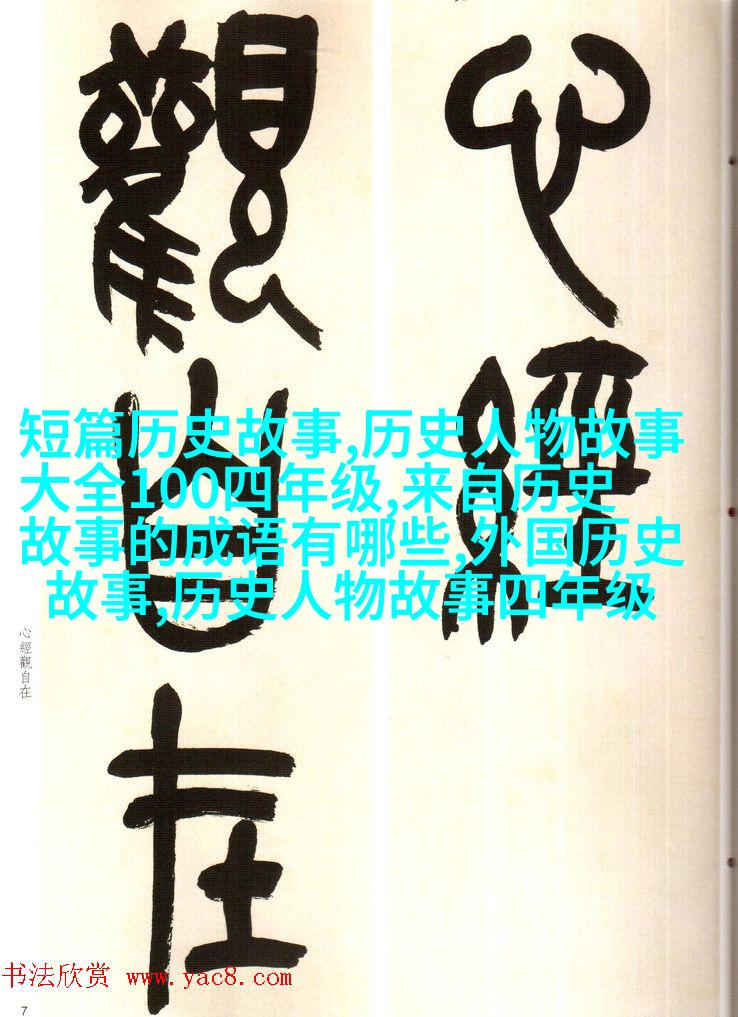 心經
觀自在
短篇历史故事,历史人物故事
大全100四年级,来自历史
故事的成语有哪些,外国历史
故事,历史人物故事四年级
心經觀自在
书法欣赏 www.yac8.com
7